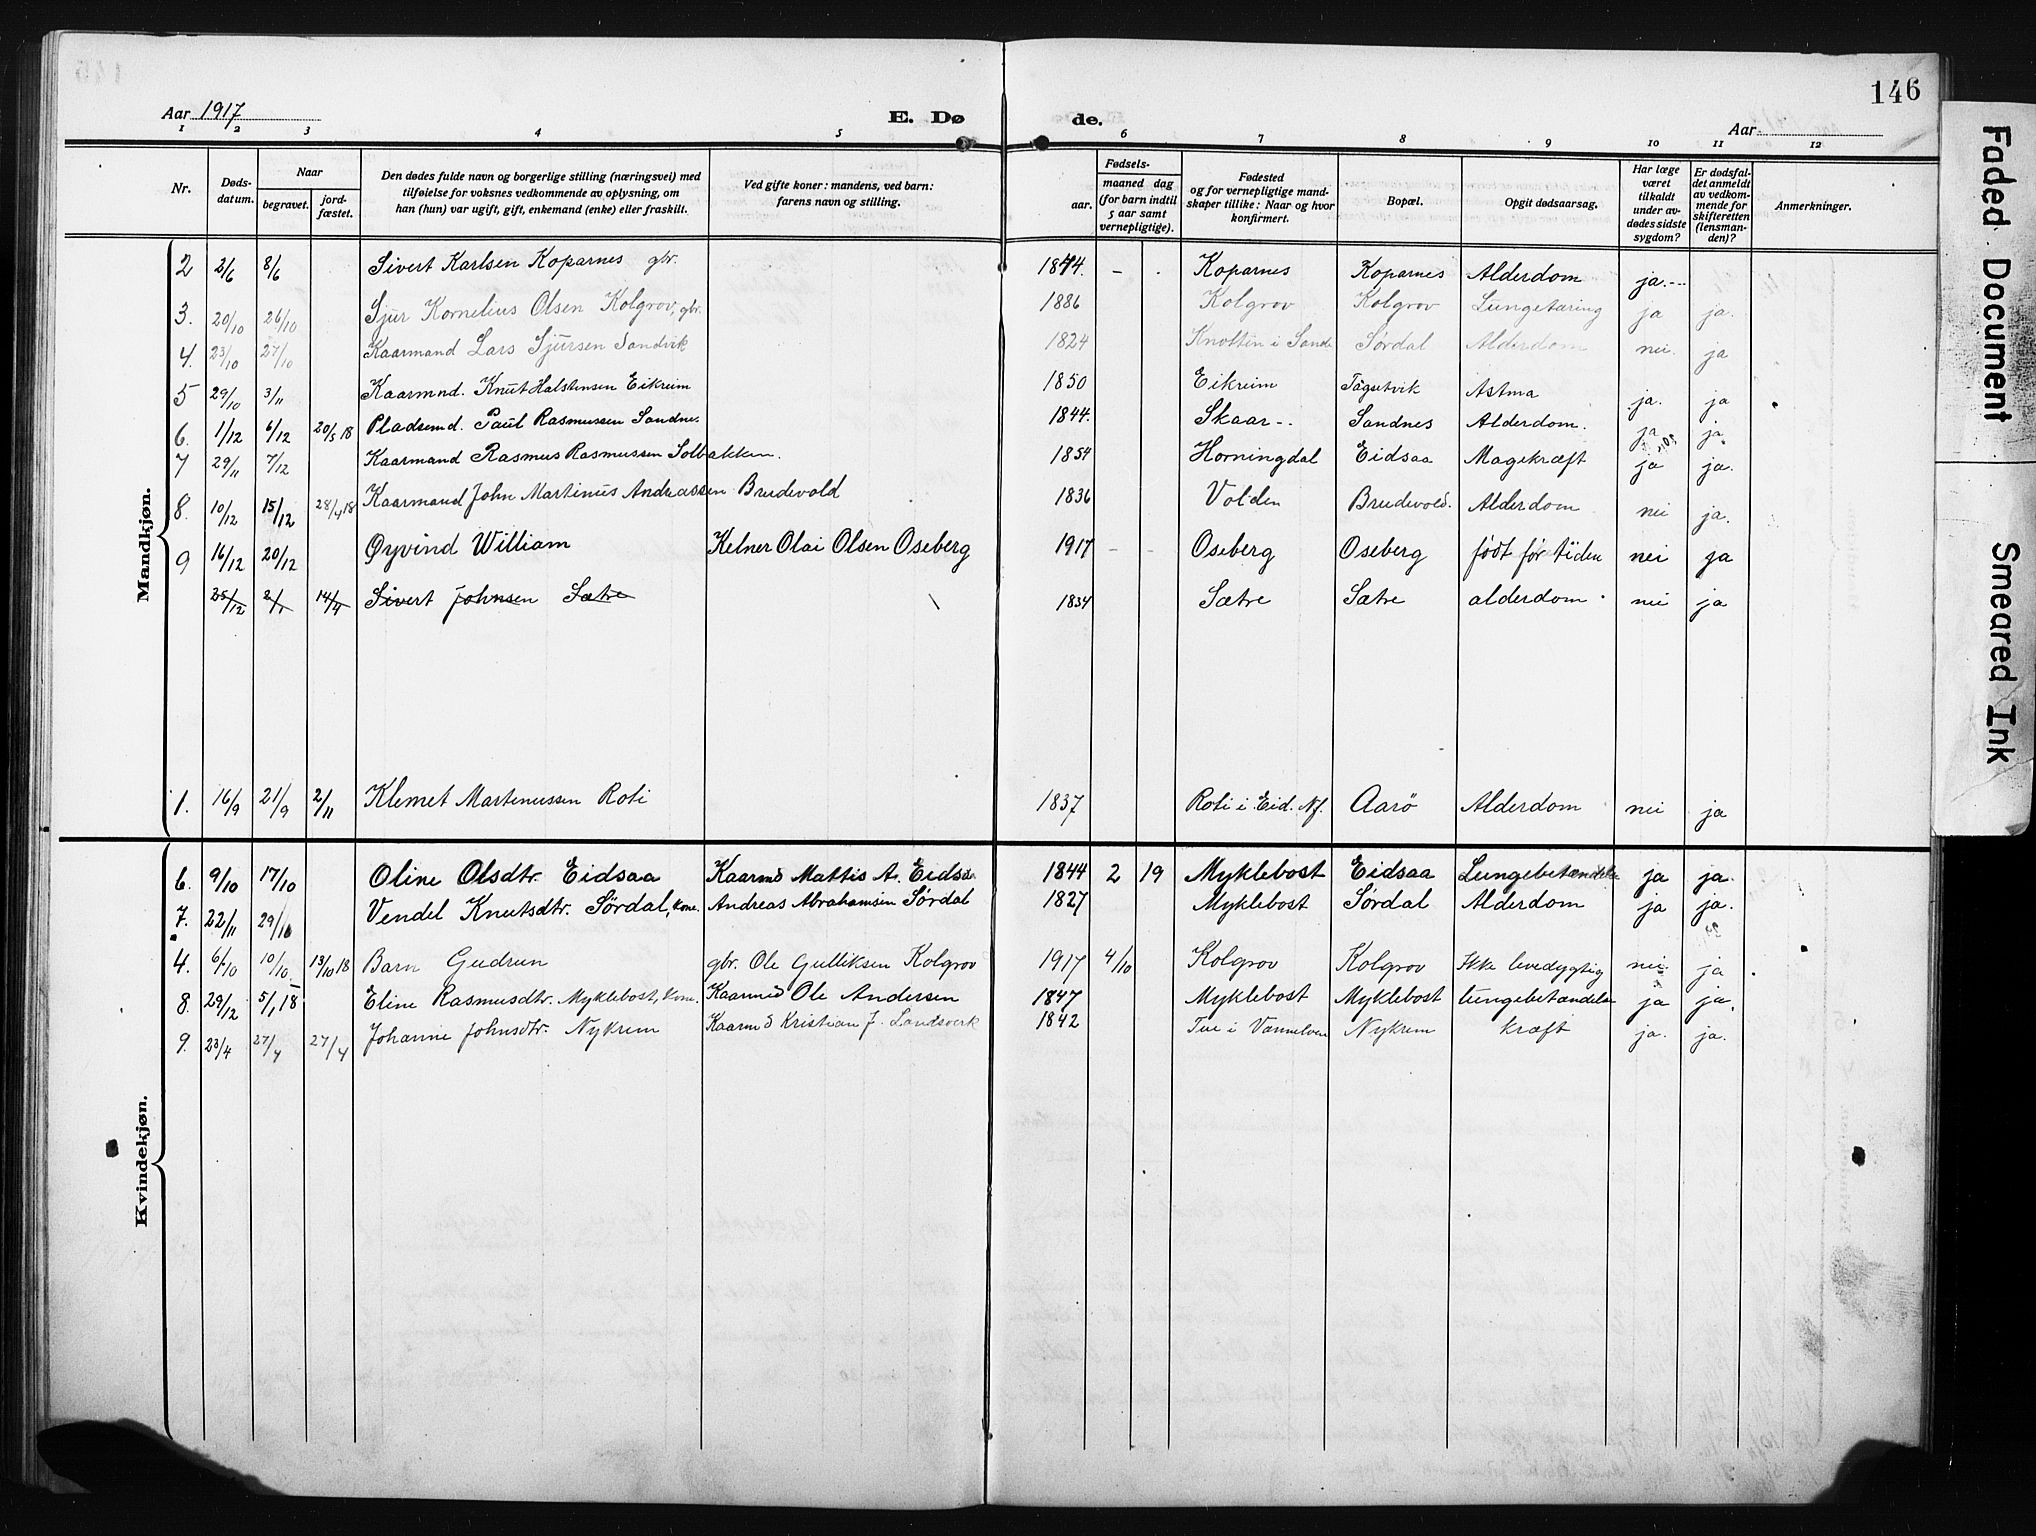 146
Aar 1917 E. Døde. Aar
1 2 3 4 5 6 7 8 9 10 11 12
Nr. Døds-datum. Naar begravet. jord-fæstet. Den dødes fulde navn og borgerlige stilling (næringsvei) med tilføielse for voksnes vedkommende av oplysning, om han (hun) var ugift, gift, enkemand (enke) eller fraskilt. Ved gifte koner: mandens, ved barn: farens navn og stilling. Fødsels- aar. maaned dag (for barn indtil 5 aar samt vernepligtige). Fødested og for vernepligtige mand-skaper tillike: Naar og hvor konfirmert. Bopæl. Opgit dødsaarsag. Har læge været tilkaldt under av-dødes sidste sygdom? Er dødsfal-det anmeldt av vedkom-mende for skifteretten (lensman-den)? Anmerkninger.
Mandkjøn.
2 2/6 8/6 Sivert Karlsen Koparnes gbr. 1844. - Koparnes Koparnes Alderdom ja.--
3. 20/10 26/10 Sjur Kornelius Olsen Kolgrov, gbr. 1886 Kolgrov Kolgrov Lungetæring ja ja.
4. 23/10 27/10 Kaarmand Lars Sjursen Sandvik 1824 Knotten i Sande Sørdal Alderdom nei. ja
5 29/10 3/11 Kaarmnd. Knut Halstensen Eikreim 1850 Eikreim Tøgutvik Astma ja. ja
6. 1/12 6/12 20/5 18 Pladsemd. Paul Rasmussen Sandne. 1844. Skaar-. Sandnes Alderdom. ja ja
7 29/11 7/12 Kaarmand Rasmus Rasmussen Solbakken. 1854 Horningdal Eidsaa Magekræft ja ja.
8. 10/12 15/12 28/4 18 Kaarmand John Martinus Andreassen Brudevold 1836 Volden Brudevold. Alderdom nei ja.
9 16/12 20/12 Øyvind William Kelner Olai Olsen Oseberg 1917 - - Oseberg Oseberg født før tiden nei ja
25/12 2/1 14/4 Sivert Johnsen Sætre 1834 Sætre Sætre alderdom nei ja
1. 16/9 21/9 2/11 Klemet Martenussen Roti 1837 Roti i Eid. Nf. Aarø Alderdom nei ja
Kvindekjøn.
6. 9/10 17/10 Oline Olsdtr. Eidsaa Kaarmd Mattis A. Eidsa 1844 2 19 Myklebost Eidsaa Lungebetændelse ja ja.
7. 22/11 29/10 Vendel Knutsdtr. Sørdal, kone. Andreas Abrahamsen Sørdal 1827 Myklebost Sørdal Alderdom ja ja.
4. 6/10 10/10 13/10 18 Barn Gudrun gbr. Ole Gulliksen Kolgrov 1917 4/10 Kolgrov Kolgrov Ikke levedygtig nei ja
8. 29/12 5/1 18 Eline Rasmusdtr. Myklebost, kone. Kaarmd Ole Andersen 1847 Myklebost Myklebost Lungebetændelse ja ja.
9. 23/4 27/4 27/4 Johanne Johnsdtr. Nykrem Kaarmd Kristian J. Landsverk 1842 Tue i Vannelven Nykrem kræft ja. ja.
Faded Document
Smeared Ink